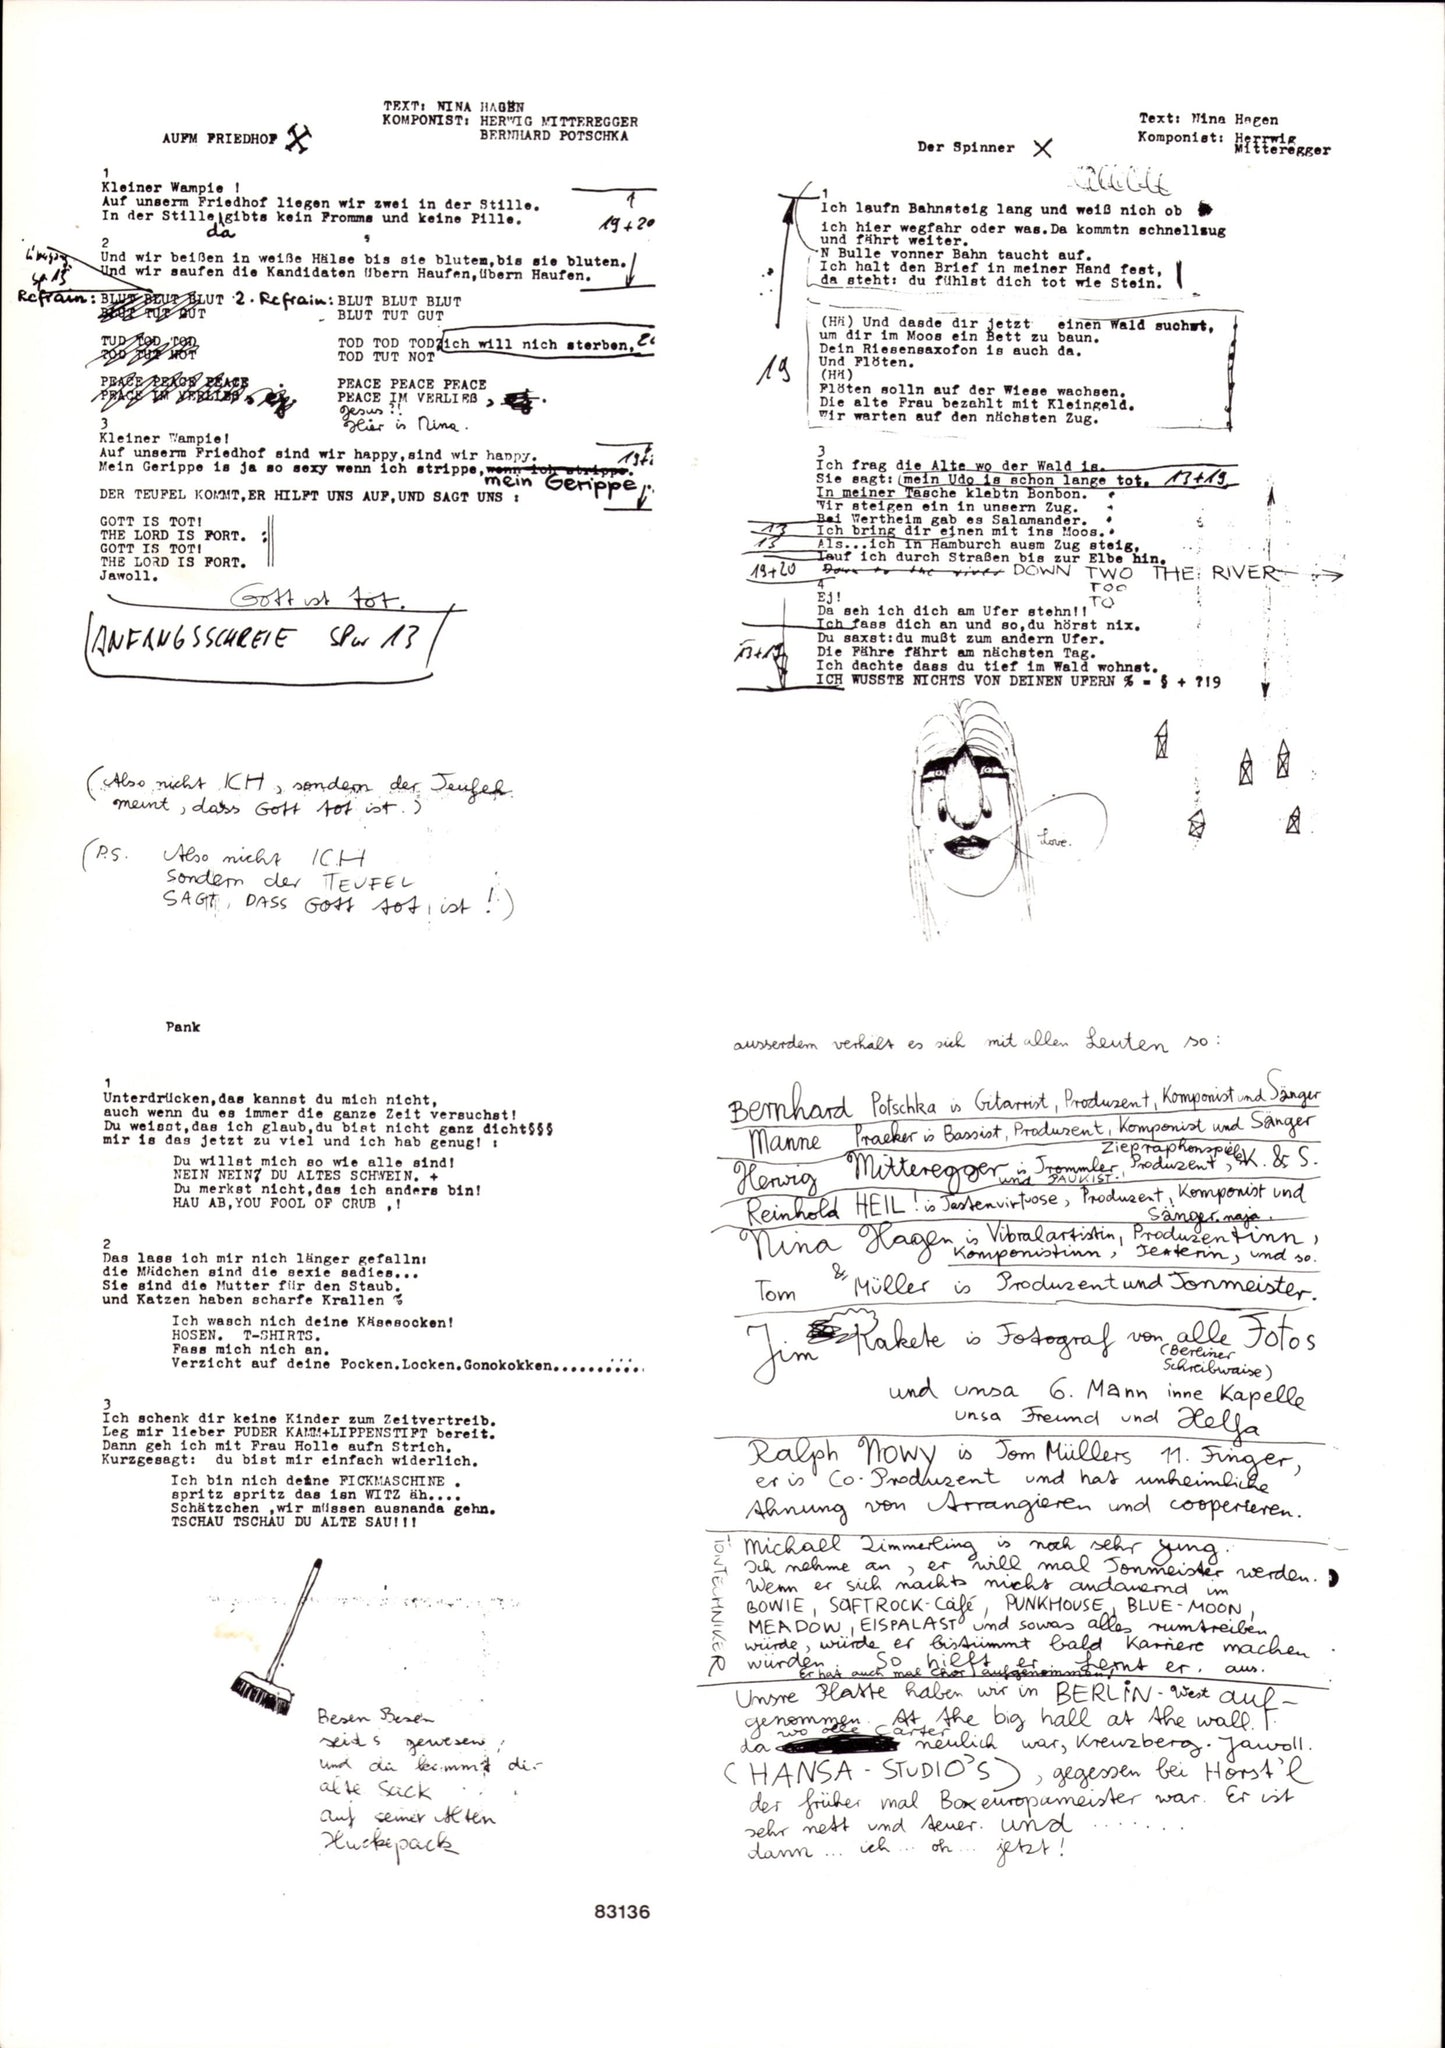 TEXT: NINA HAGEN
KOMPONIST: HERWIG MITTEREGGER
BERNHARD POTSCHKA
AUFM FRIEDHOF
1
Kleiner Wampie !
Auf unserm Friedhof liegen wir zwei in der Stille.
In der Stille gibts kein Fromms und keine Pille.
da
19+20
2
Und wir beißen in weiße Hälse bis sie bluten,bis sie bluten.
Und wir saufen die Kandidaten übern Haufen,übern Haufen.
Refrain: BLUT BLUT BLUT 2. Refrain: BLUT BLUT BLUT
BLUT TUT GUT BLUT TUT GUT
TUD TOD TOD TOD TOD TOD ich will nich sterben,
TOD TUT NOT TOD TUT NOT
PEACE PEACE PEACE PEACE PEACE PEACE
PEACE IM VERLIEß PEACE IM VERLIEß,
Jesus!!
Hier is Nina.
3
Kleiner Wampie!
Auf unserm Friedhof sind wir happy,sind wir happy.
Mein Gerippe is ja so sexy wenn ich strippe,wenn ich strippe.
mein Gerippe
DER TEUFEL KOMMT,ER HILFT UNS AUF,UND SAGT UNS :
GOTT IS TOT!
THE LORD IS FORT.
GOTT IS TOT!
THE LORD IS FORT.
Jawoll.
Gott ist tot.
ANFANGSSCHREIE SPur 13
(Also nicht ICH, sondern der Teufel
meint, dass Gott tot ist.)
(P.S. Also nicht ICH
sondern der TEUFEL
SAGT, DASS GOTT tot ist!)
Text: Nina Hagen
Komponist: Herrwig
Mitteregger
Der Spinner
1
Ich laufn Bahnsteig lang und weiß nich ob
ich hier wegfahr oder was.Da kommtn schnellzug
und fährt weiter.
N Bulle vonner Bahn taucht auf.
Ich halt den Brief in meiner Hand fest,
da steht: du fühlst dich tot wie Stein.
(Hä) Und dasde dir jetzt einen Wald suchst,
um dir im Moos ein Bett zu baun.
Dein Riesensaxofon is auch da.
Und Flöten.
(Hä)
Flöten solln auf der Wiese wachsen.
Die alte Frau bezahlt mit Kleingeld.
Wir warten auf den nächsten Zug.
19
3
Ich frag die Alte wo der Wald is.
Sie sagt: mein Udo is schon lange tot. 13+19
In meiner Tasche klebtn Bonbon.
Wir steigen ein in unsern Zug.
Bei Wertheim gab es Salamander.
13 Ich bring dir einen mit ins Moos.
13 Als...ich in Hamburch ausm Zug steig,
lauf ich durch Straßen bis zur Elbe hin.
19+20 Down to the river DOWN TWO THE RIVER
TOO
TO
4
Ej!
Da seh ich dich am Ufer stehn!!
Ich fass dich an und so,du hörst nix.
Du saxst:du mußt zum andern Ufer.
13+19 Die Fähre fährt am nächsten Tag.
Ich dachte dass du tief im Wald wohnst.
ICH WUSSTE NICHTS VON DEINEN UFERN % = § + ?19
Love.
Pank
1
Unterdrücken,das kannst du mich nicht,
auch wenn du es immer die ganze Zeit versuchst!
Du weisst,das ich glaub,du bist nicht ganz dicht§§§
mir is das jetzt zu viel und ich hab genug! :
Du willst mich so wie alle sind!
NEIN NEIN? DU ALTES SCHWEIN. +
Du merkst nicht,das ich anders bin!
HAU AB,YOU FOOL OF CRUB ,!
2
Das lass ich mir nich länger gefalln:
die Mädchen sind die sexie sadies...
Sie sind die Mutter für den Staub.
und Katzen haben scharfe Krallen %
Ich wasch nich deine Käsesocken!
HOSEN. T-SHIRTS.
Fass mich nich an.
Verzicht auf deine Pocken.Locken.Gonokokken............
3
Ich schenk dir keine Kinder zum Zeitvertreib.
Leg mir lieber PUDER KAMM+LIPPENSTIFT bereit.
Dann geh ich mit Frau Holle aufn Strich.
Kurzgesagt: du bist mir einfach widerlich.
Ich bin nich deine FICKMASCHINE .
spritz spritz das isn WITZ äh....
Schätzchen ,wir müssen ausnanda gehn.
TSCHAU TSCHAU DU ALTE SAU!!!
Besen Besen
seids gewesen,
und da kommt die
alte Sack
auf seiner Alten
Huckepack
ausserdem verhält es sich mit allen Leuten so:
Bernhard Potschka is Gitarrist, Produzent, Komponist und Sänger
Manne Praeker is Bassist, Produzent, Komponist und Sänger
Herwig Mitteregger is Trommler, Produzent, K. & S.
und PAUKIST!
Reinhold HEIL! is Tastenvirtuose, Produzent, Komponist und
Sänger. naja.
Nina Hagen is Vibralartistin, Produzentinn,
Komponistinn, Texterin, und so.
Tom & Müller is Produzent und Tonmeister.
Jim Rakete is Fotograf von alle Fotos
(Berliner
Schreibwaise)
und unsa 6. Mann inne Kapelle
unsa Freund und Helfa
Ralph NOWY is Tom Müllers 11. Finger,
er is Co-Produzent und hat unheimliche
Ahnung von Arrangieren und cooperieren.
TONTECHNIKER
Michael Zimmerling is noch sehr jung.
Ich nehme an, er will mal Tonmeister werden.
Wenn er sich nachts nicht andauernd im
BOWIE, SOFTROCK-Café, PUNKHOUSE, BLUE-MOON,
MEADOW, EISPALAST und sowas alles rumtreiben
würde, würde er bistümmt bald Karriere machen
würden. So hilft er. Lernt er. aus.
Er hat auch mal Chor aufgenommen,
Unsre Platte haben wir in BERLIN-West auf-
genommen. At the big hall at the wall.
wo olle Carter
da neulich war, Kreuzberg. Jawoll.
(HANSA-STUDIO'S), gegessen bei Horst'l
der früher mal Boxeuropameister war. Er ist
sehr nett und teuer. und .......
dann ... ich ... oh ... jetzt!
83136